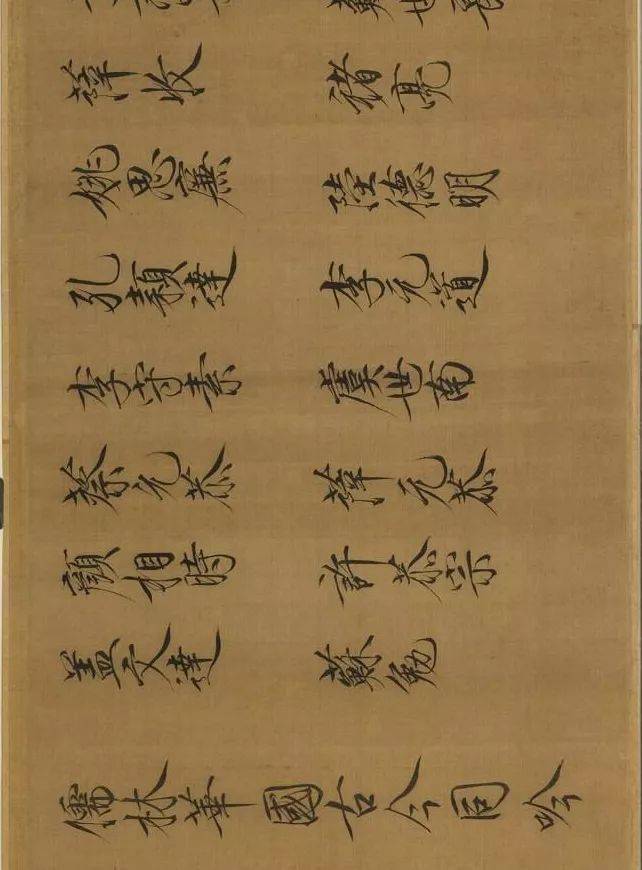 蘇世長
薛收 褚亮
姚思廉 陸德明
孔穎達 李元道
李守素 虞世南
蔡元恭 薛元恭
顏相時 許恭宗
蓋文達 蘇勉
儒林華國古今同吟